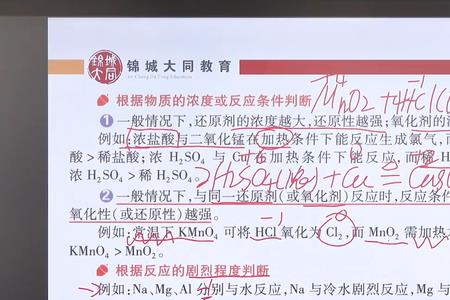 锦城大同
锦城大同教育
Jin Cheng Da Tong Education
根据物质的浓度或反应条件判断
+4 -1
MnO2+4HCl(
①一般情况下,还原剂的浓度越大,还原性越强;氧化剂的浓
例如:浓盐酸与二氧化锰在加热条件下能反应生成氯气,而
酸>稀盐酸;浓 H2SO4 与 Cu 在加热条件下能反应,而稀 H
浓 H2SO4>稀 H2SO4。
+6 0
2H2SO4(浓)+Cu=CuSO
②一般情况下,与同一还原剂(或氧化剂)反应时,反应条件
氧化性(或还原性)越强。
-1 0
例如:常温下 KMnO4 可将 HCl 氧化为 Cl2,而 MnO2 需加热
KMnO4>MnO2。
根据反应的剧烈程度判断
例如:Na、Mg、Al 分别与水反应,Na 与冷水剧烈反应,Mg 与